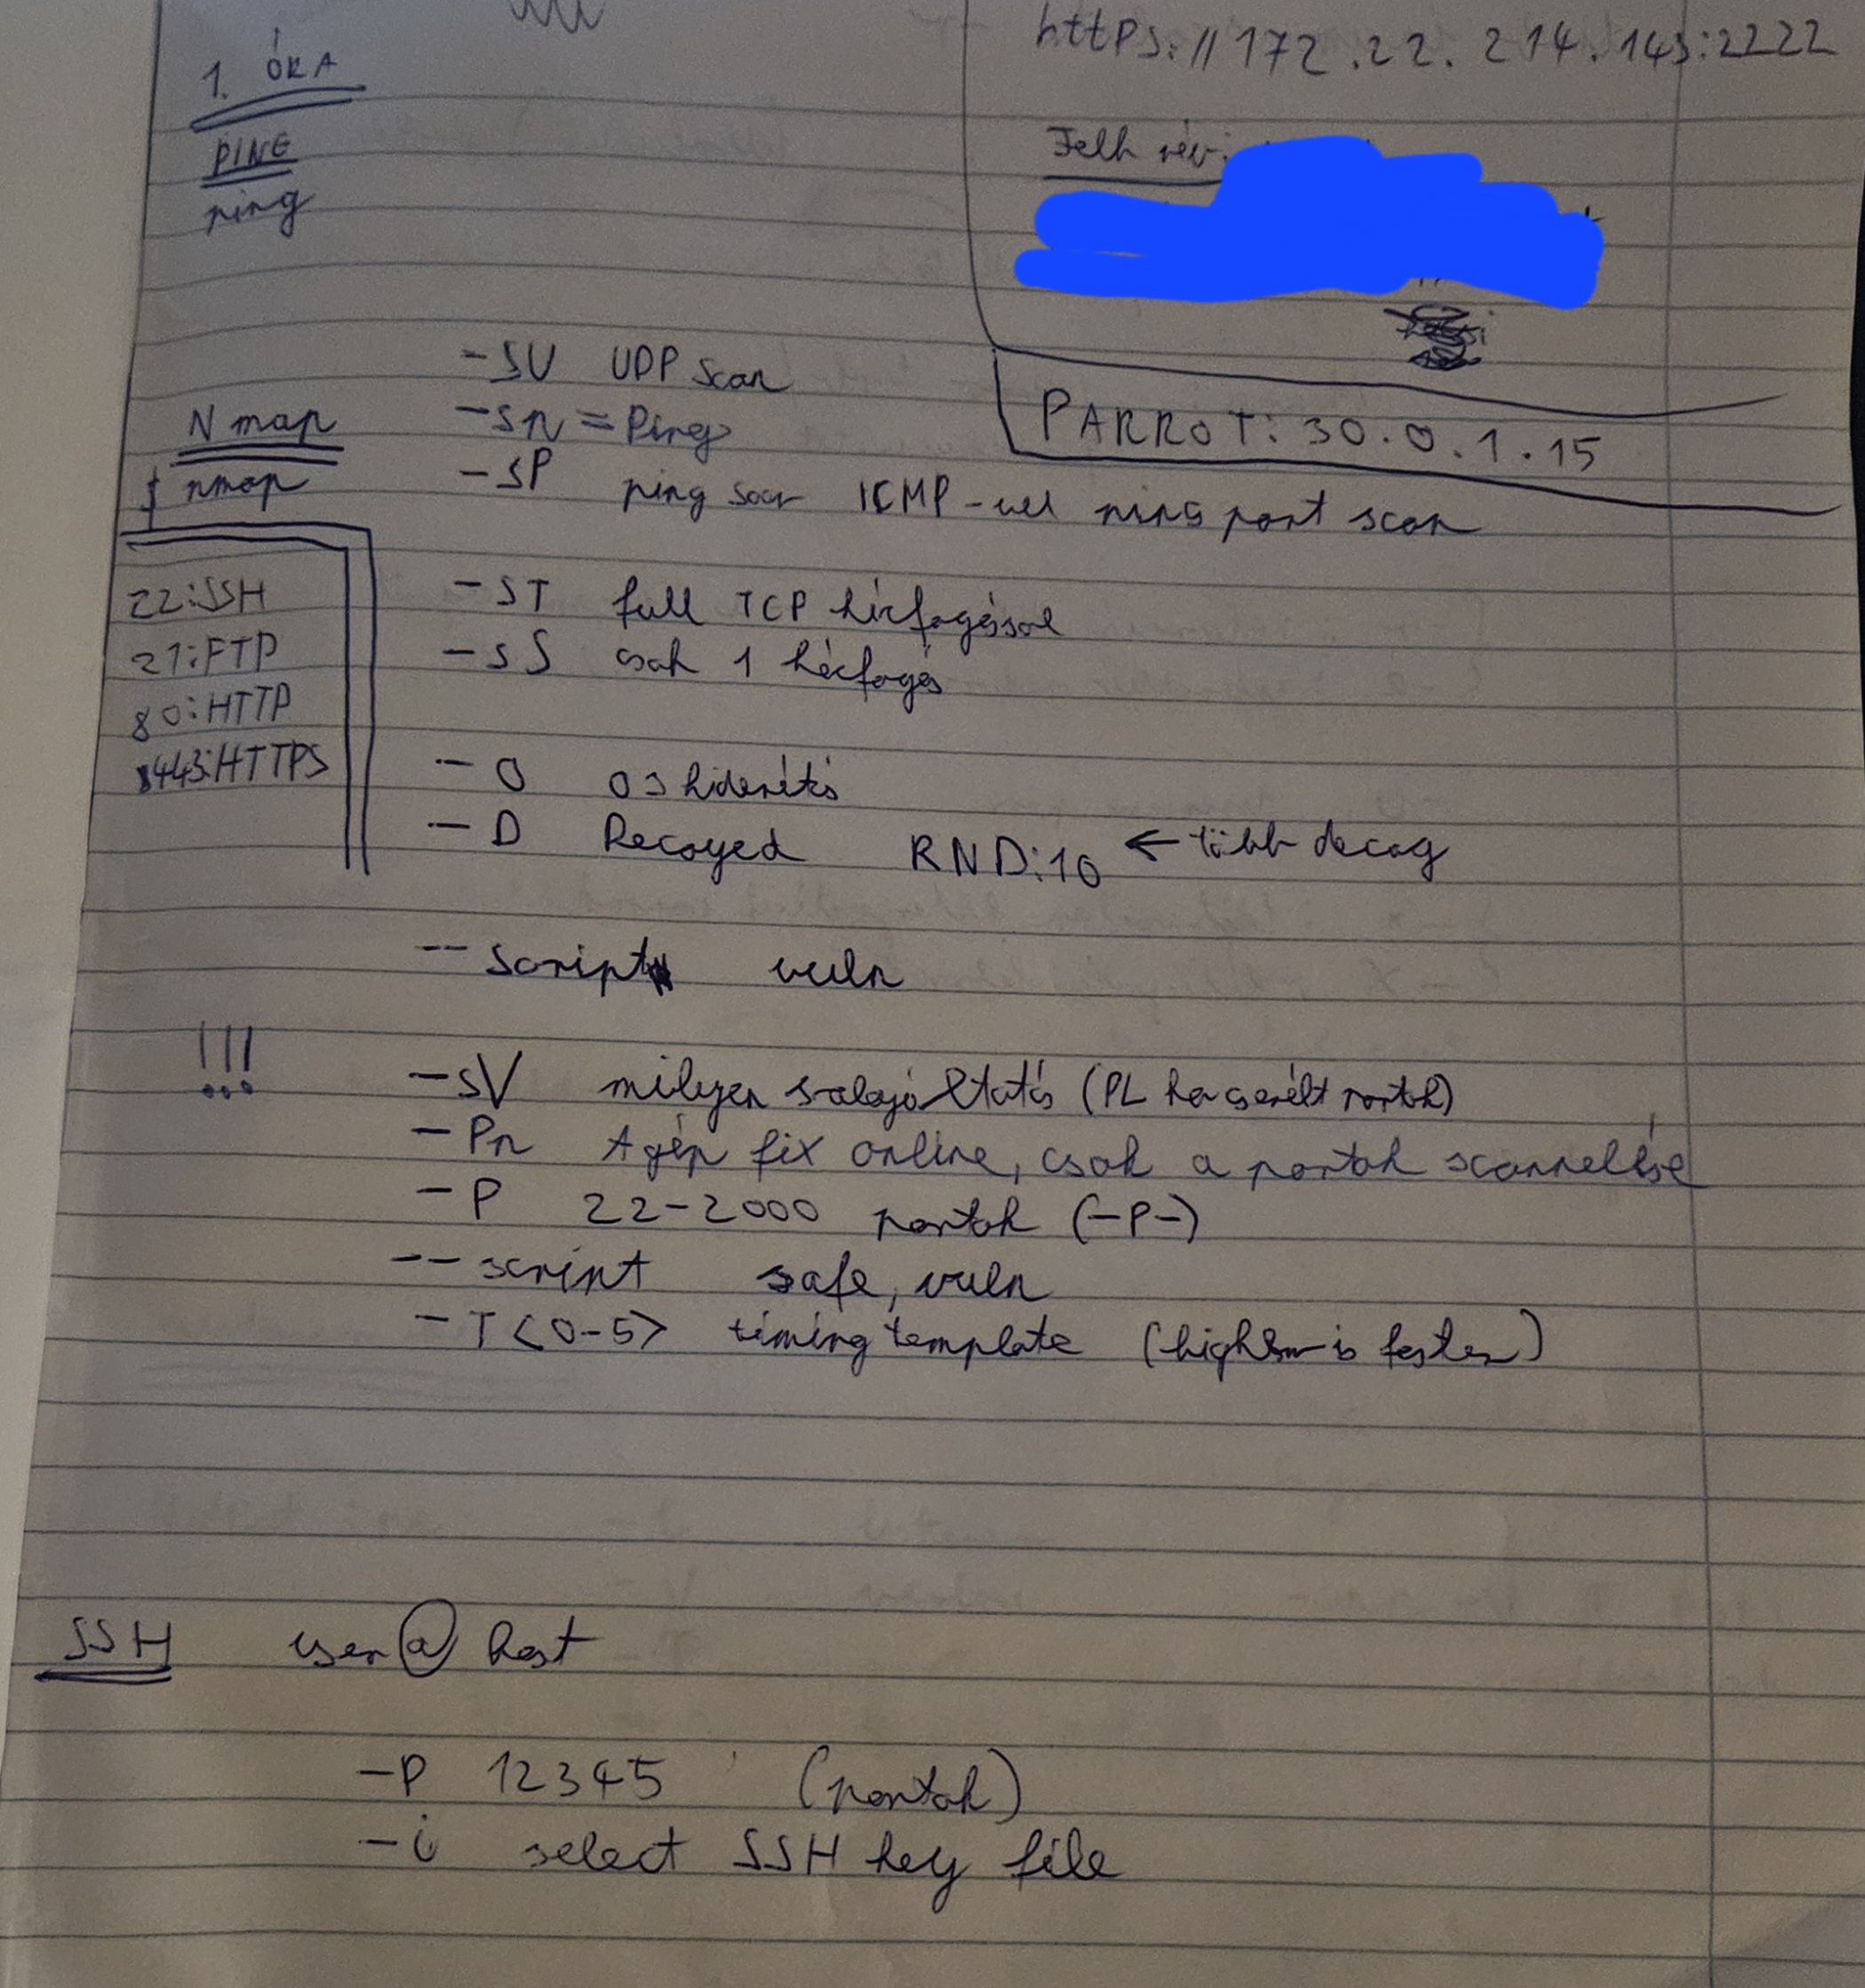 1. ÓRA
PING
ping
https://172.22.214.143:2222
Felh név:
PARROT: 30.0.1.15
Nmap
nmap
22:SSH
21:FTP
80:HTTP
443:HTTPS
-sU UDP scan
-sn = Ping
-sP ping scan ICMP-vel nincs port scan
-sT full TCP kézfogással
-sS csak 1 kézfogás
-O OS kiderítés
-D Decoyed RND:10 ← több decoy
--script vuln
!!!
-sV milyen szolgáltatás (PL ha cserélt portok)
-Pn A gép fix online, csak a portok scannelése
-P 22-2000 portok (-P-)
--script safe, vuln
-T<0-5> timing template (higher is faster)
SSH user@host
-P 12345 (portok)
-i select SSH key file